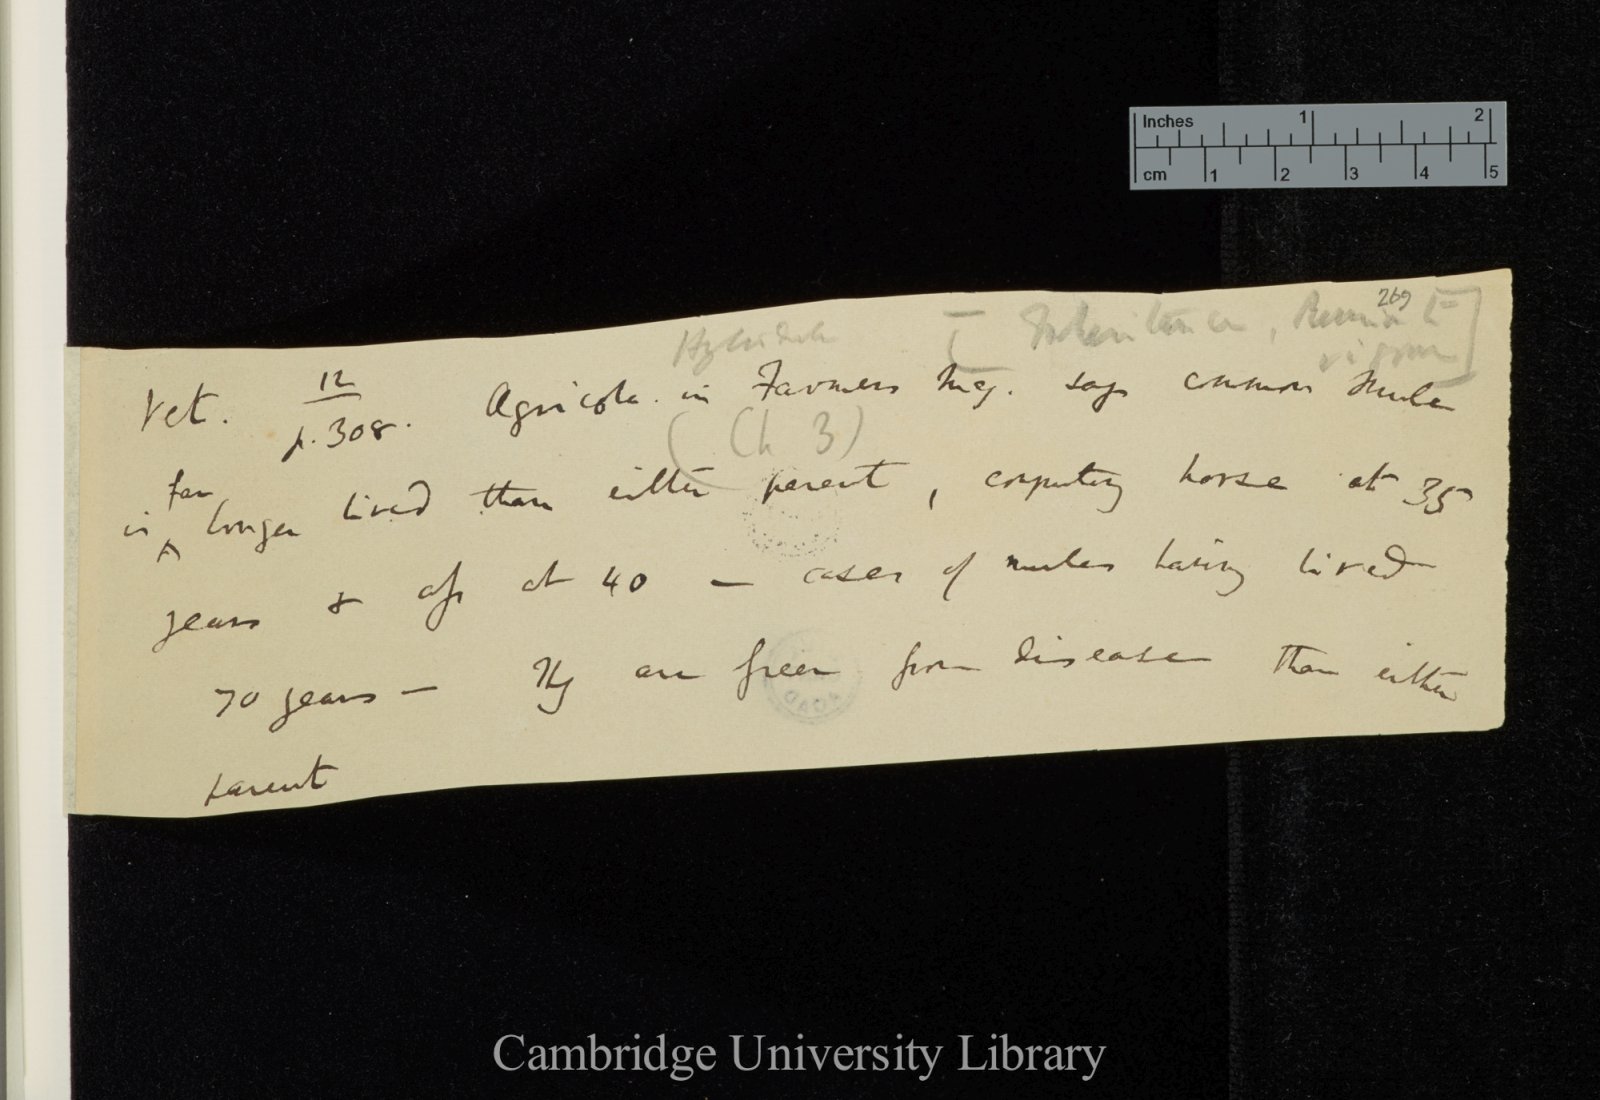 Inches 1 2
cm 1 2 3 4 5
269
Hybridity [Inheritance,
vigour]
Vet. 12
p. 308. Agricola in Farmers Mag. says common Mule
(Ch 3)
is far longer lived than either parent, computing horse at 35
years & ass at 40 — cases of mules having lived
70 years — They are freer from disease than either
parent
Cambridge University Library